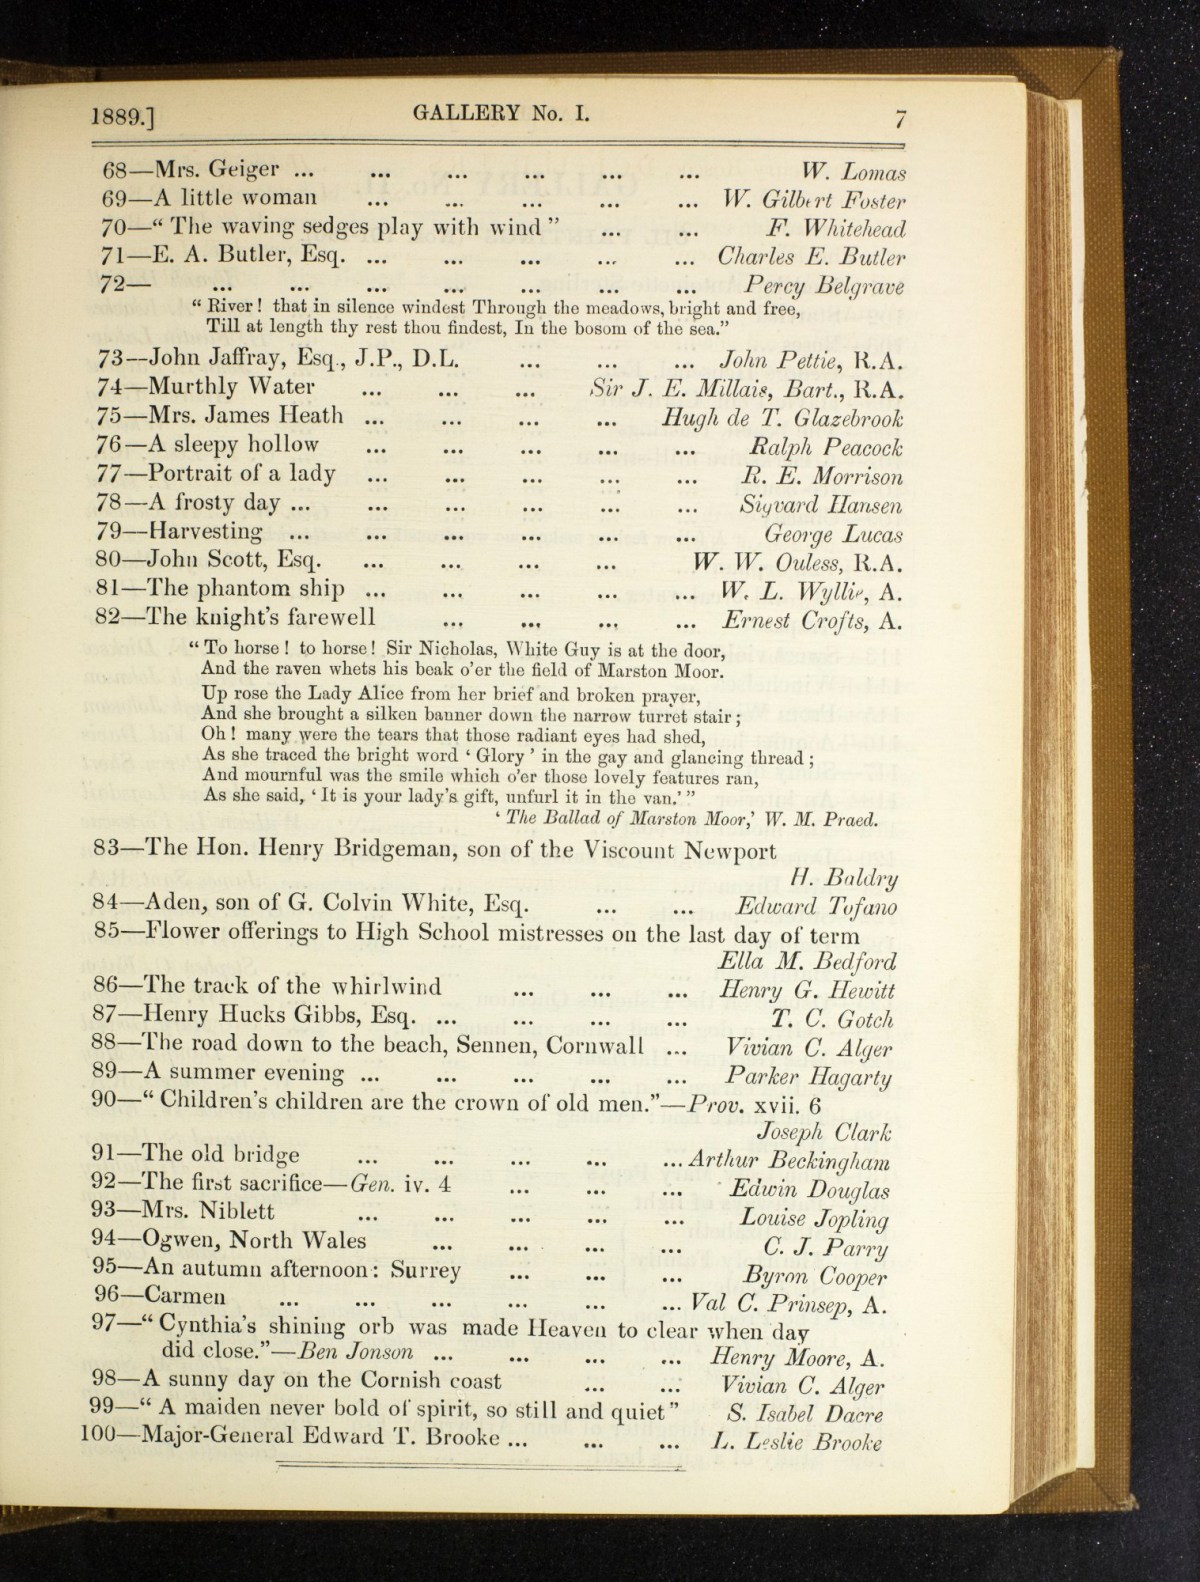 1889.] GALLERY No. I. 7
68—Mrs. Geiger ... ... ... ... ... ... W. Lomas
69—A little woman ... ... ... ... ... W. Gilbert Foster
70—“ The waving sedges play with wind ” ... ... F. Whitehead
71—E. A. Butler, Esq. ... ... ... ... ... Charles E. Butler
72— ... ... ... ... ... ... ... Percy Belgrave
“ River ! that in silence windest Through the meadows, bright and free,
Till at length thy rest thou findest, In the bosom of the sea.”
73—John Jaffray, Esq., J.P., D.L. ... ... ... John Pettie, R.A.
74—Murthly Water ... ... ... Sir J. E. Millais, Bart., R.A.
75—Mrs. James Heath ... ... ... ... Hugh de T. Glazebrook
76—A sleepy hollow ... ... ... ... ... Ralph Peacock
77—Portrait of a lady ... ... ... ... ... R. E. Morrison
78—A frosty day ... ... ... ... ... ... Sigvard Hansen
79—Harvesting ... ... ... ... ... ... George Lucas
80—John Scott, Esq. ... ... ... ... W. W. Ouless, R.A.
81—The phantom ship ... ... ... ... ... W. L. Wyllie, A.
82—The knight’s farewell ... ... ... ... Ernest Crofts, A.
“ To horse ! to horse ! Sir Nicholas, White Guy is at the door,
And the raven whets his beak o’er the field of Marston Moor.
Up rose the Lady Alice from her brief and broken prayer,
And she brought a silken banner down the narrow turret stair ;
Oh ! many were the tears that those radiant eyes had shed,
As she traced the bright word ‘ Glory ’ in the gay and glancing thread ;
And mournful was the smile which o’er those lovely features ran,
As she said, ‘ It is your lady’s gift, unfurl it in the van.’ ”
‘ The Ballad of Marston Moor,’ W. M. Praed.
83—The Hon. Henry Bridgeman, son of the Viscount Newport
H. Baldry
84—Aden, son of G. Colvin White, Esq. ... ... Edward Tofano
85—Flower offerings to High School mistresses on the last day of term
Ella M. Bedford
86—The track of the whirlwind ... ... ... Henry G. Hewitt
87—Henry Hucks Gibbs, Esq. ... ... ... ... T. C. Gotch
88—The road down to the beach, Sennen, Cornwall ... Vivian C. Alger
89—A summer evening ... ... ... ... ... Parker Hagarty
90—“ Children’s children are the crown of old men.”—Prov. xvii. 6
Joseph Clark
91—The old bridge ... ... ... ... ... Arthur Beckingham
92—The first sacrifice—Gen. iv. 4 ... ... ... Edwin Douglas
93—Mrs. Niblett ... ... ... ... ... Louise Jopling
94—Ogwen, North Wales ... ... ... ... C. J. Parry
95—An autumn afternoon : Surrey ... ... ... Byron Cooper
96—Carmen ... ... ... ... ... ... Val C. Prinsep, A.
97—“ Cynthia’s shining orb was made Heaven to clear when day
did close.”—Ben Jonson ... ... ... ... Henry Moore, A.
98—A sunny day on the Cornish coast ... ... Vivian C. Alger
99—“ A maiden never bold of spirit, so still and quiet ” S. Isabel Dacre
100—Major-General Edward T. Brooke ... ... ... L. Leslie Brooke